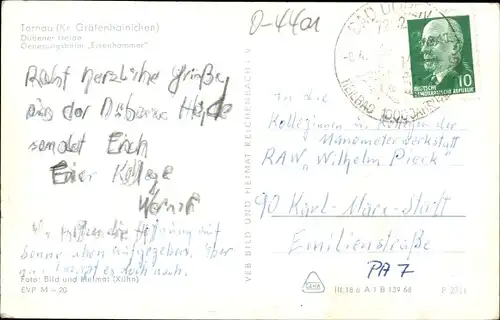 Tornau (Kr. Gräfenhainichen)
Dübener Heide
Genesungsheim „Eisenhammer"
0-4401
Recht herzliche Grüße
aus der Dübener Heide
sendet Euch
Euer Kollege
Werner
Wir die Hoffnung auf
Sonne schon aufgegeben. Aber
es doch noch.
Foto: Bild und Heimat (Kühn)
EVP M –20
VEB BILD UND HEIMAT REICHENBACH I. V.
BAD DÜBEN
10
DEUTSCHE
DEMOKRATISCHE REPUBLIK
An die
Kolleginnen u. Kollegen der
Manometerwerkstatt
RAW „Wilhelm Pieck"
90 Karl-Marx-Stadt
Emilienstraße
PA 7
III 18 6 A 1 B 139 68